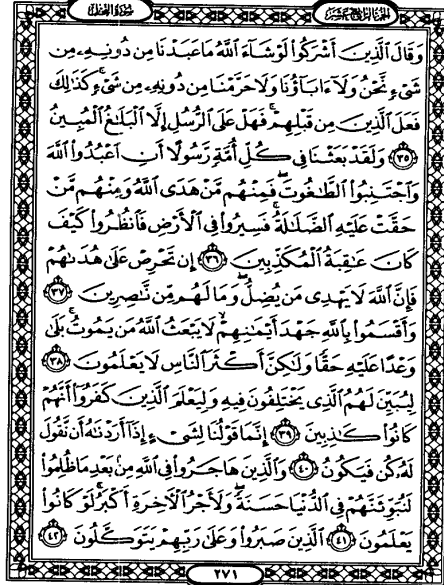 الجزء الرابع عشر
سورة النحل
وَقَالَ الَّذِينَ أَشْرَكُوا لَوْ شَاءَ اللَّهُ مَا عَبَدْنَا مِن دُونِهِ مِن
شَيْءٍ نَّحْنُ وَلَا ءَابَاؤُنَا وَلَا حَرَّمْنَا مِن دُونِهِ مِن شَيْءٍ كَذَٰلِكَ
فَعَلَ الَّذِينَ مِن قَبْلِهِمْ فَهَلْ عَلَى الرُّسُلِ إِلَّا الْبَلَاغُ الْمُبِينُ
٣٥ وَلَقَدْ بَعَثْنَا فِي كُلِّ أُمَّةٍ رَّسُولًا أَنِ اعْبُدُوا اللَّهَ
وَاجْتَنِبُوا الطَّاغُوتَ فَمِنْهُم مَّنْ هَدَى اللَّهُ وَمِنْهُم مَّنْ
حَقَّتْ عَلَيْهِ الضَّلَالَةُ فَسِيرُوا فِي الْأَرْضِ فَانظُرُوا كَيْفَ
كَانَ عَاقِبَةُ الْمُكَذِّبِينَ ٣٦ إِن تَحْرِصْ عَلَىٰ هُدَىٰهُمْ
فَإِنَّ اللَّهَ لَا يَهْدِي مَن يُضِلُّ وَمَا لَهُم مِّن نَّاصِرِينَ ٣٧
وَأَقْسَمُوا بِاللَّهِ جَهْدَ أَيْمَانِهِمْ لَا يَبْعَثُ اللَّهُ مَن يَمُوتُ بَلَىٰ
وَعْدًا عَلَيْهِ حَقًّا وَلَٰكِنَّ أَكْثَرَ النَّاسِ لَا يَعْلَمُونَ ٣٨
لِيُبَيِّنَ لَهُمُ الَّذِي يَخْتَلِفُونَ فِيهِ وَلِيَعْلَمَ الَّذِينَ كَفَرُوا أَنَّهُمْ
كَانُوا كَاذِبِينَ ٣٩ إِنَّمَا قَوْلُنَا لِشَيْءٍ إِذَا أَرَدْنَاهُ أَن نَّقُولَ
لَهُ كُن فَيَكُونُ ٤٠ وَالَّذِينَ هَاجَرُوا فِي اللَّهِ مِن بَعْدِ مَا ظُلِمُوا
لَنُبَوِّئَنَّهُمْ فِي الدُّنْيَا حَسَنَةً وَلَأَجْرُ الْآخِرَةِ أَكْبَرُ لَوْ كَانُوا
يَعْلَمُونَ ٤١ الَّذِينَ صَبَرُوا وَعَلَىٰ رَبِّهِمْ يَتَوَكَّلُونَ ٤٢
٢٧١